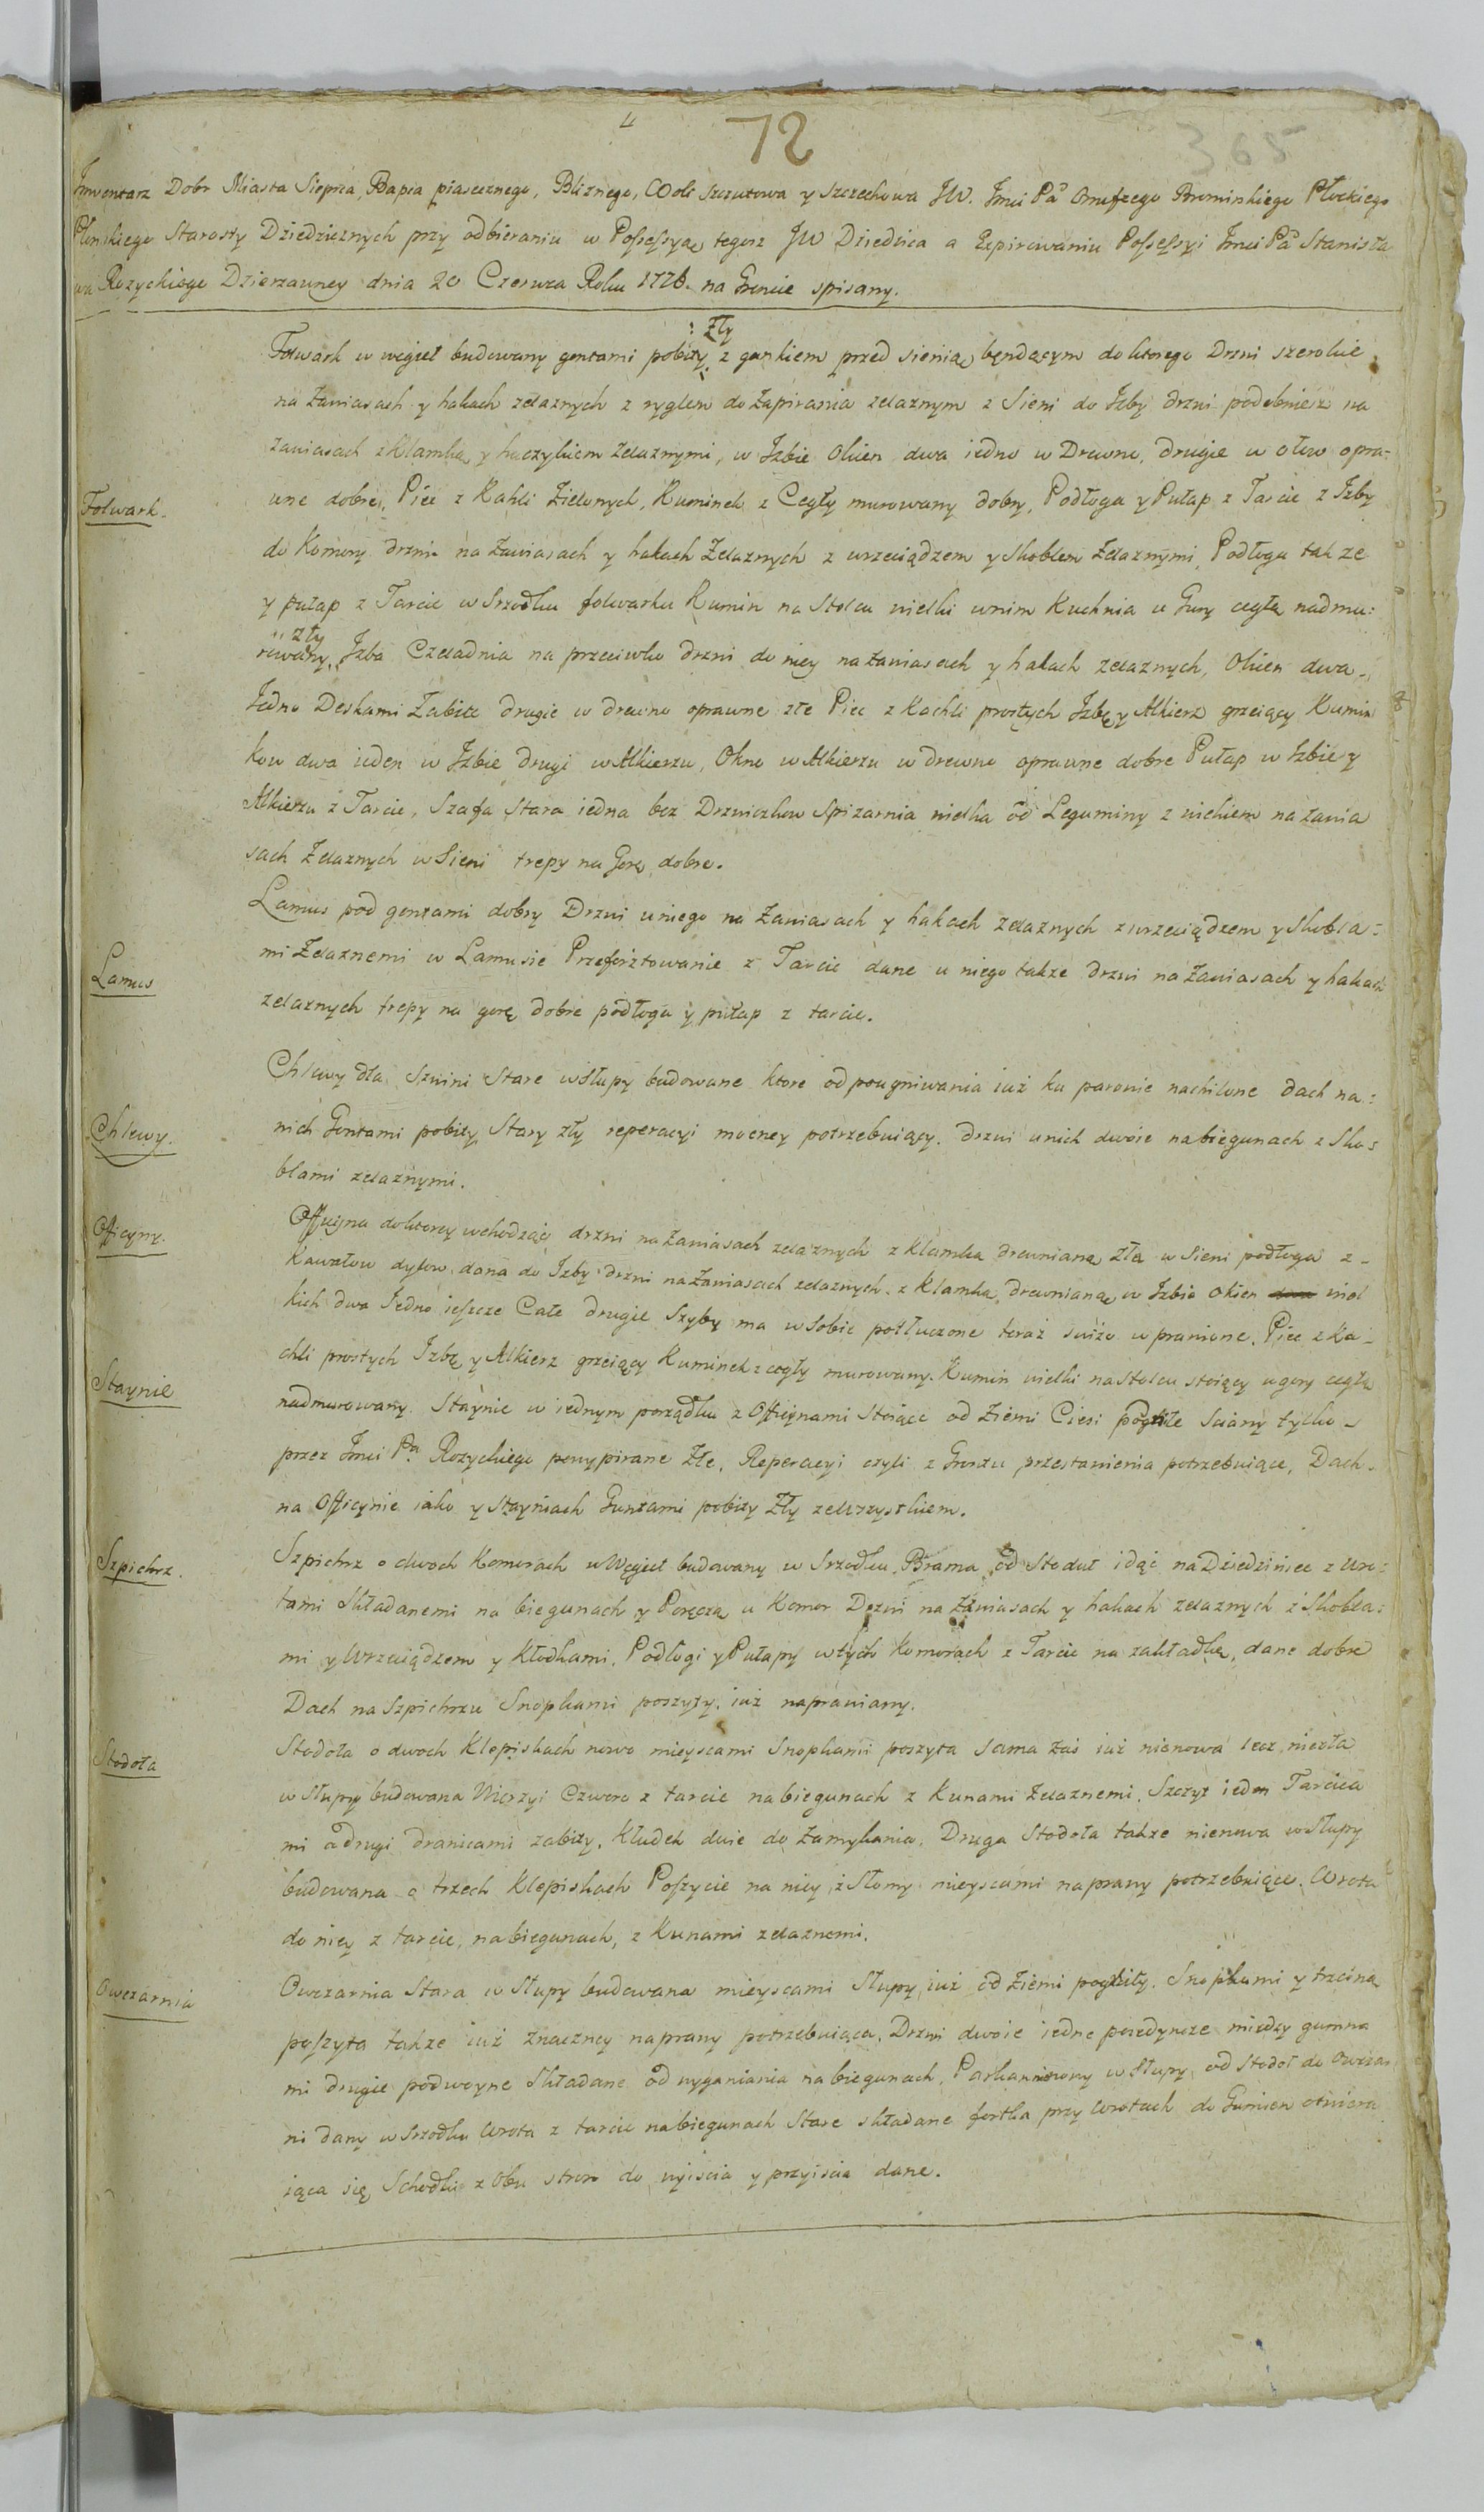 72
365
Inwentarz Dobr Miasta Siepca, Bapca piasecznego, Bliznego, Woli Szczutowa y Szczechowa JW. Jmci Pa Onufrego Bromirskiego Płockiego
Płonskiego Starosty Dziedzicznych przy odbieraniu w Possessyą tegoz JW Dziedzica a Expirowaniu Possessyi Jmci Pa Stanisła
wa Rozyckiego Dzierzawney dnia 20 Czerwca Roku 1776. na Gruncie spisany.
zły
Folwark w węgieł budowany gontami pobity z gankiem przed sienią będącym do ktorego Drzwi szerokie
na zawiasach y hakach zelaznych z ryglem do Zapirania zelaznym z Sieni do Izby drzwi podobniez na
zawiasach z Klamką y haczykiem zelaznymi, w Izbie Okien dwa iedno w Drewno, drugie w ołow opra-
wne dobre, Piec z Kahli Zielonych, Kuminek z Cegły murowany dobry, Podłoga y Pułap z Tarcic z Izby
Folwark.
do Komory drzwi na zawiasach y hakach Zelaznych z wrzeciądzem y Skoblem Zelaznymi, Podłoga takze
y pułap z Tarcic w Srzodku folwarku Kumin na Stolcu wielki w nim Kuchnia u Gury cegłą nadmu:
zły
rowany, Izba Czeladnia na przeciwko drzwi do niey na zawiasach y hakach zelaznych, Okien dwa
Iedno Deskami Zabite drugie w drewno oprawne złe Piec z Kachli prostych Izbę y Alkierz grzeiący Kumin
kow dwa ieden w Izbie drugi w Alkierzu, Okno w Alkierzu w drewno oprawne dobre Pułap w Izbie y
Alkierzu z Tarcic, Szafa Stara iedna bez Drzwiczkow Spizarnia wielka od Leguminy z wiekiem na zawia
sach Zelaznych w Sieni trepy na Gorę dobre.
Lamus pod gontami dobry Drzwi u niego na zawiasach y hakach zelaznych z wrzeciądzem y Skobla:
mi Zelaznemi w Lamusie Przeforsztowanie z Tarcic dane u niego takze drzwi na zawiasach y hakach
Lamus
zelaznych trepy na gorę dobre podłoga y pułap z tarcic.
Chlewy dla Szwini Stare w słupy budowane ktore od pougniwania iuż ku parowie nachilone dach na:
Chlewy.
nich Gontami pobity Stary zły reperacyi mocney potrzebuiący. drzwi u nich dwoie na biegunach z Sko:
blami zelaznymi.
Officyny.
Officyna do ktorey wchodząc drzwi na zawiasach zelaznych z Klamką drewnianą zła w Sieni podłoga z
Kawałow dylow dana do Izby drzwi na zawiasach zelaznych z Klamką drewnianą w Izbie okien wiel
kich dwa Iedno ieszcze Całe drugie Szyby ma w sobie potłuczone teraz swiżo w prawione. Piec z Ka-
chli prostych Izbę y Alkierz grzeiący Kuminek z cegły murowany. Kumin wielki na Stolcu stoiący u gory cegłą
Staynie
nadmurowany. Staynie w iednym porządku z Officynami Stoiące od ziemi Ciesi pogniłe Sciany tylko
przez Jmci Pa Rozyckiego powypirane Złe, Reperacyi czyli z Gruntu przestawienia potrzebuiące, Dach
na Officynie iako y Stayniach Guntami pobity Zły zewszystkiem.
Szpichrz.
Szpichrz o dwoch Komorach w Węgieł budowany w Srzodku Brama od Stoduł idąc na Dziedziniec z wro:
tami Składanemi na biegunach y Poręczą u Komor Drzwi na zawiasach y hakach zelaznych z Skobla:
mi y Wrzeciądzem y Kłodkami, Podłogi y Pułapy w tych Komorach z Tarcic na zakładkę, dane dobre
Dach na Szpichrzu Snopkami poszyty, iuż naprawiany.
Stodoła
Stodoła o dwoch Klepiskach nowo mieyscami Snopkami poszyta sama zaś iuż nienowa lecz niezła
w Słupy budowana Wierzyi Czworo z tarcic na biegunach z Kunami Zelaznemi, Szczyt ieden Tarcica
mi a drugi dranicami zabity, Kłudek dwie do Zamykania, Druga Stodoła takze nienowa w Słupy
budowana o trzech Klepiskach Poszycie na niey z Słomy mieyscami naprawy potrzebuiące. Wrota
do niey z tarcic, na biegunach, z Kunami zelaznemi.
Owczarnia
Owczarnia Stara w Słupy budowana mieyscami Słupy iuż od ziemi pogniły. Snopkami y trzciną
poszyta takze iuż znaczney naprawy potrzebuiąca, Drzwi dwoie iedne poiedyncze między gumna
mi drugie podwoyne Składane od wyganiania na biegunach, Parkan nowy w Słupy od Stodoł do Owczar
ni dany w Srzodku Wrota z tarcic na biegunach Stare składane fortka przy Wrotach do Gumien otwiera
iąca się Schodki z obu stron do wyiscia y przyiscia dane.